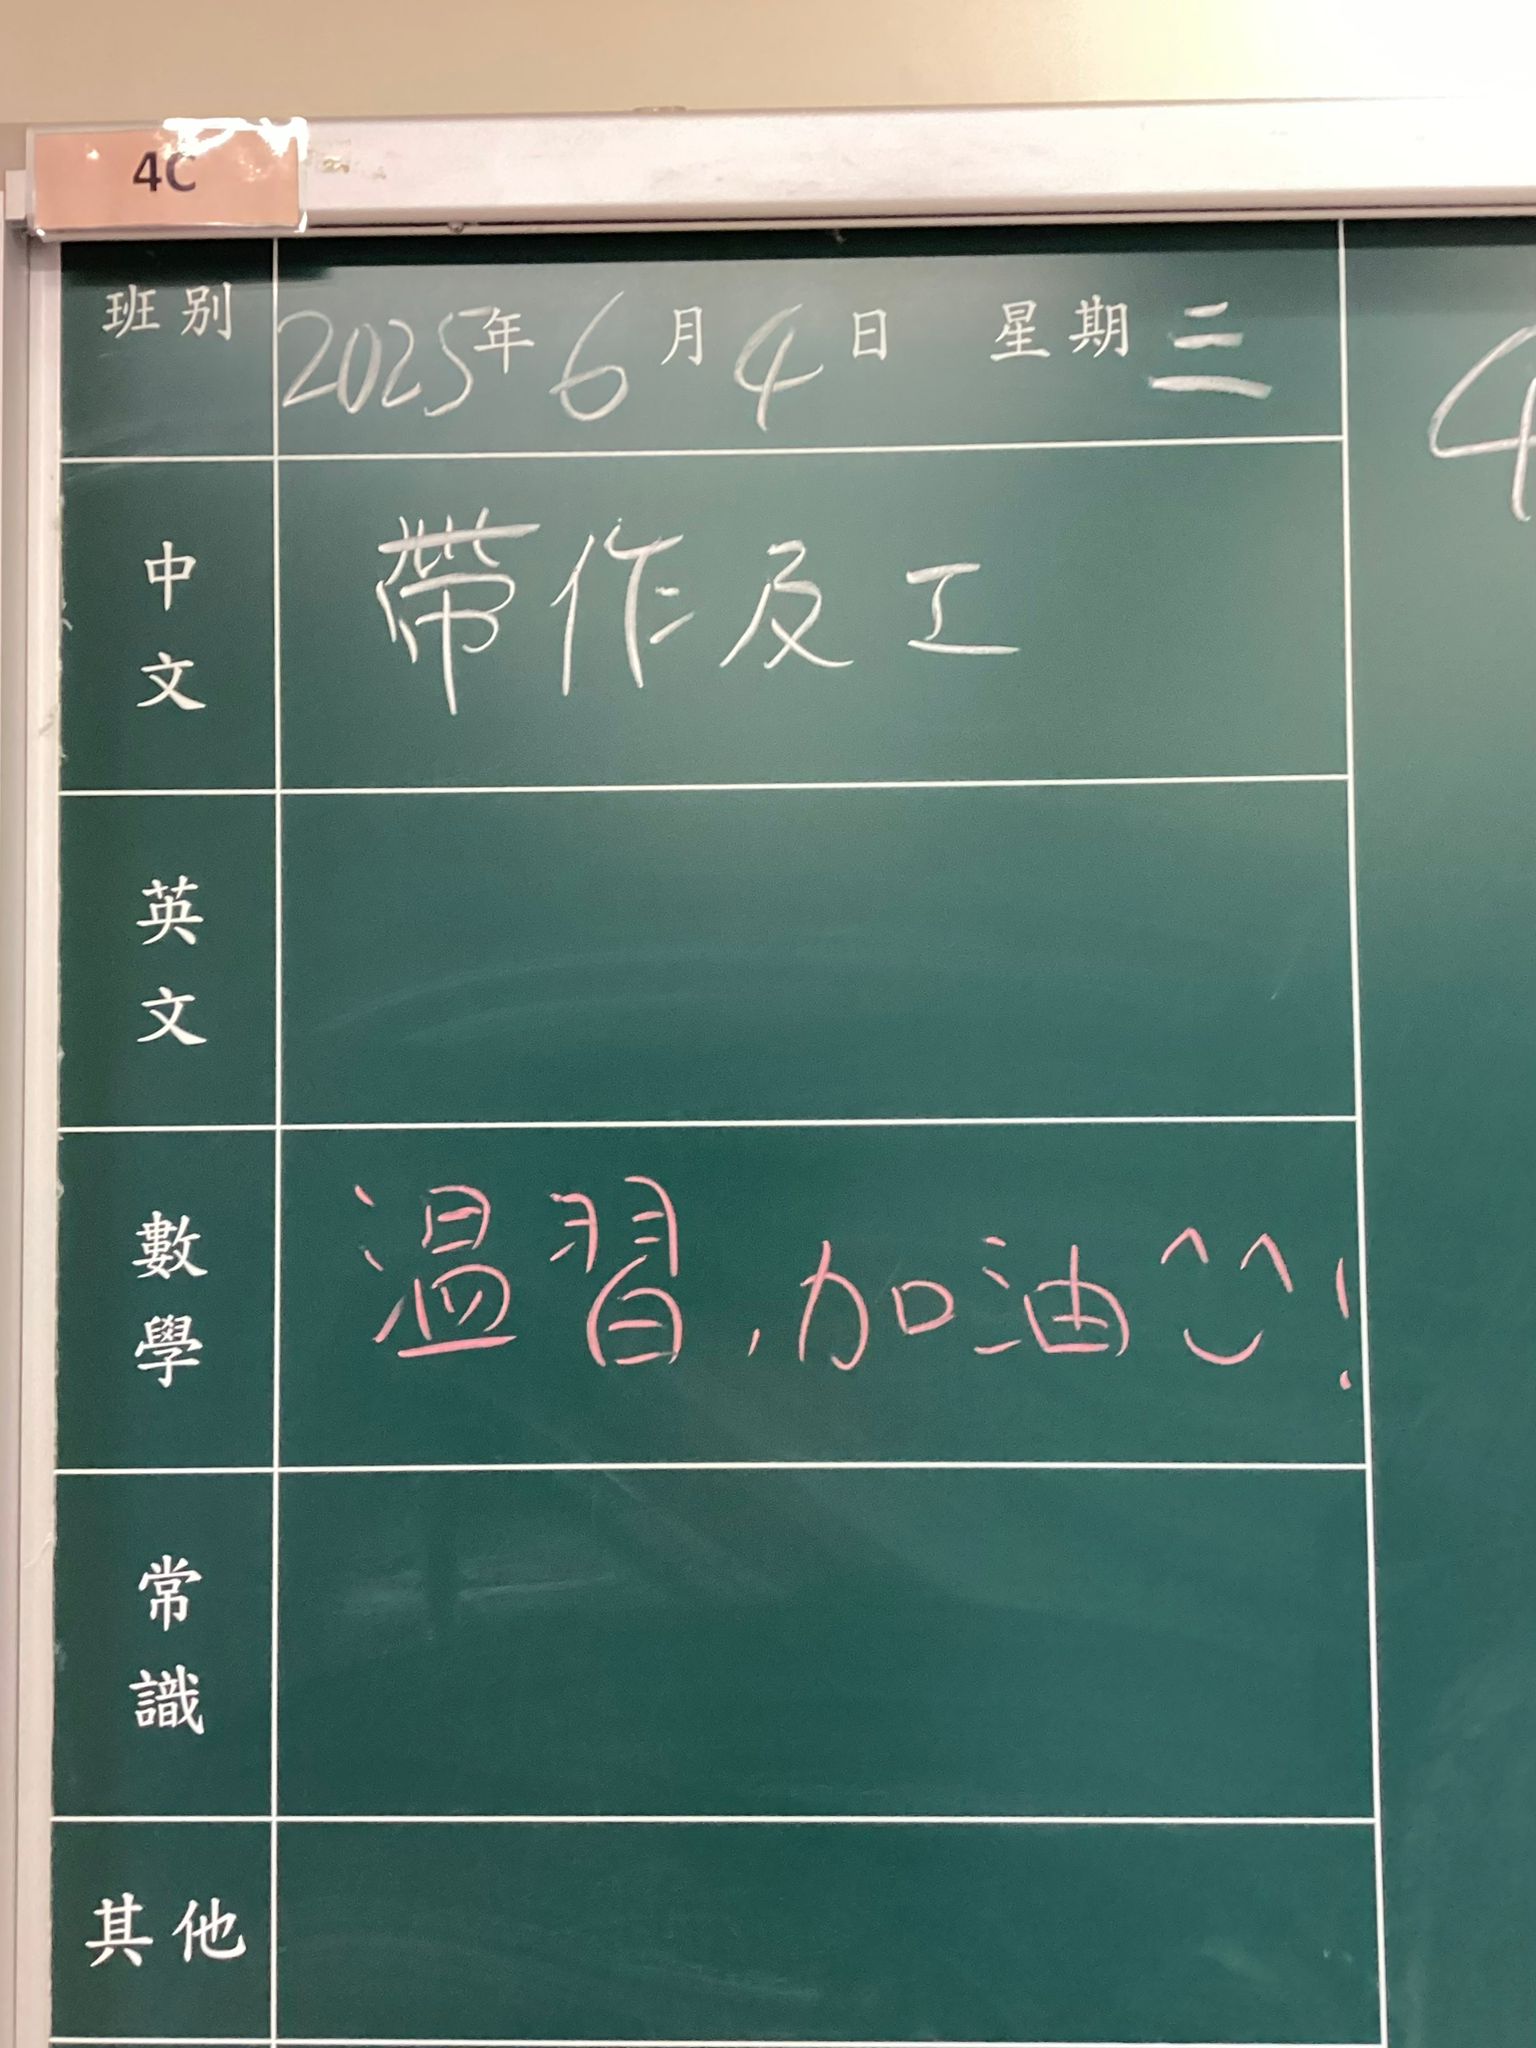 4C
班別 2025年6月4日 星期三
中文 帶作及工
英文
數學 溫習,加油^‿^!
常識
其他
4